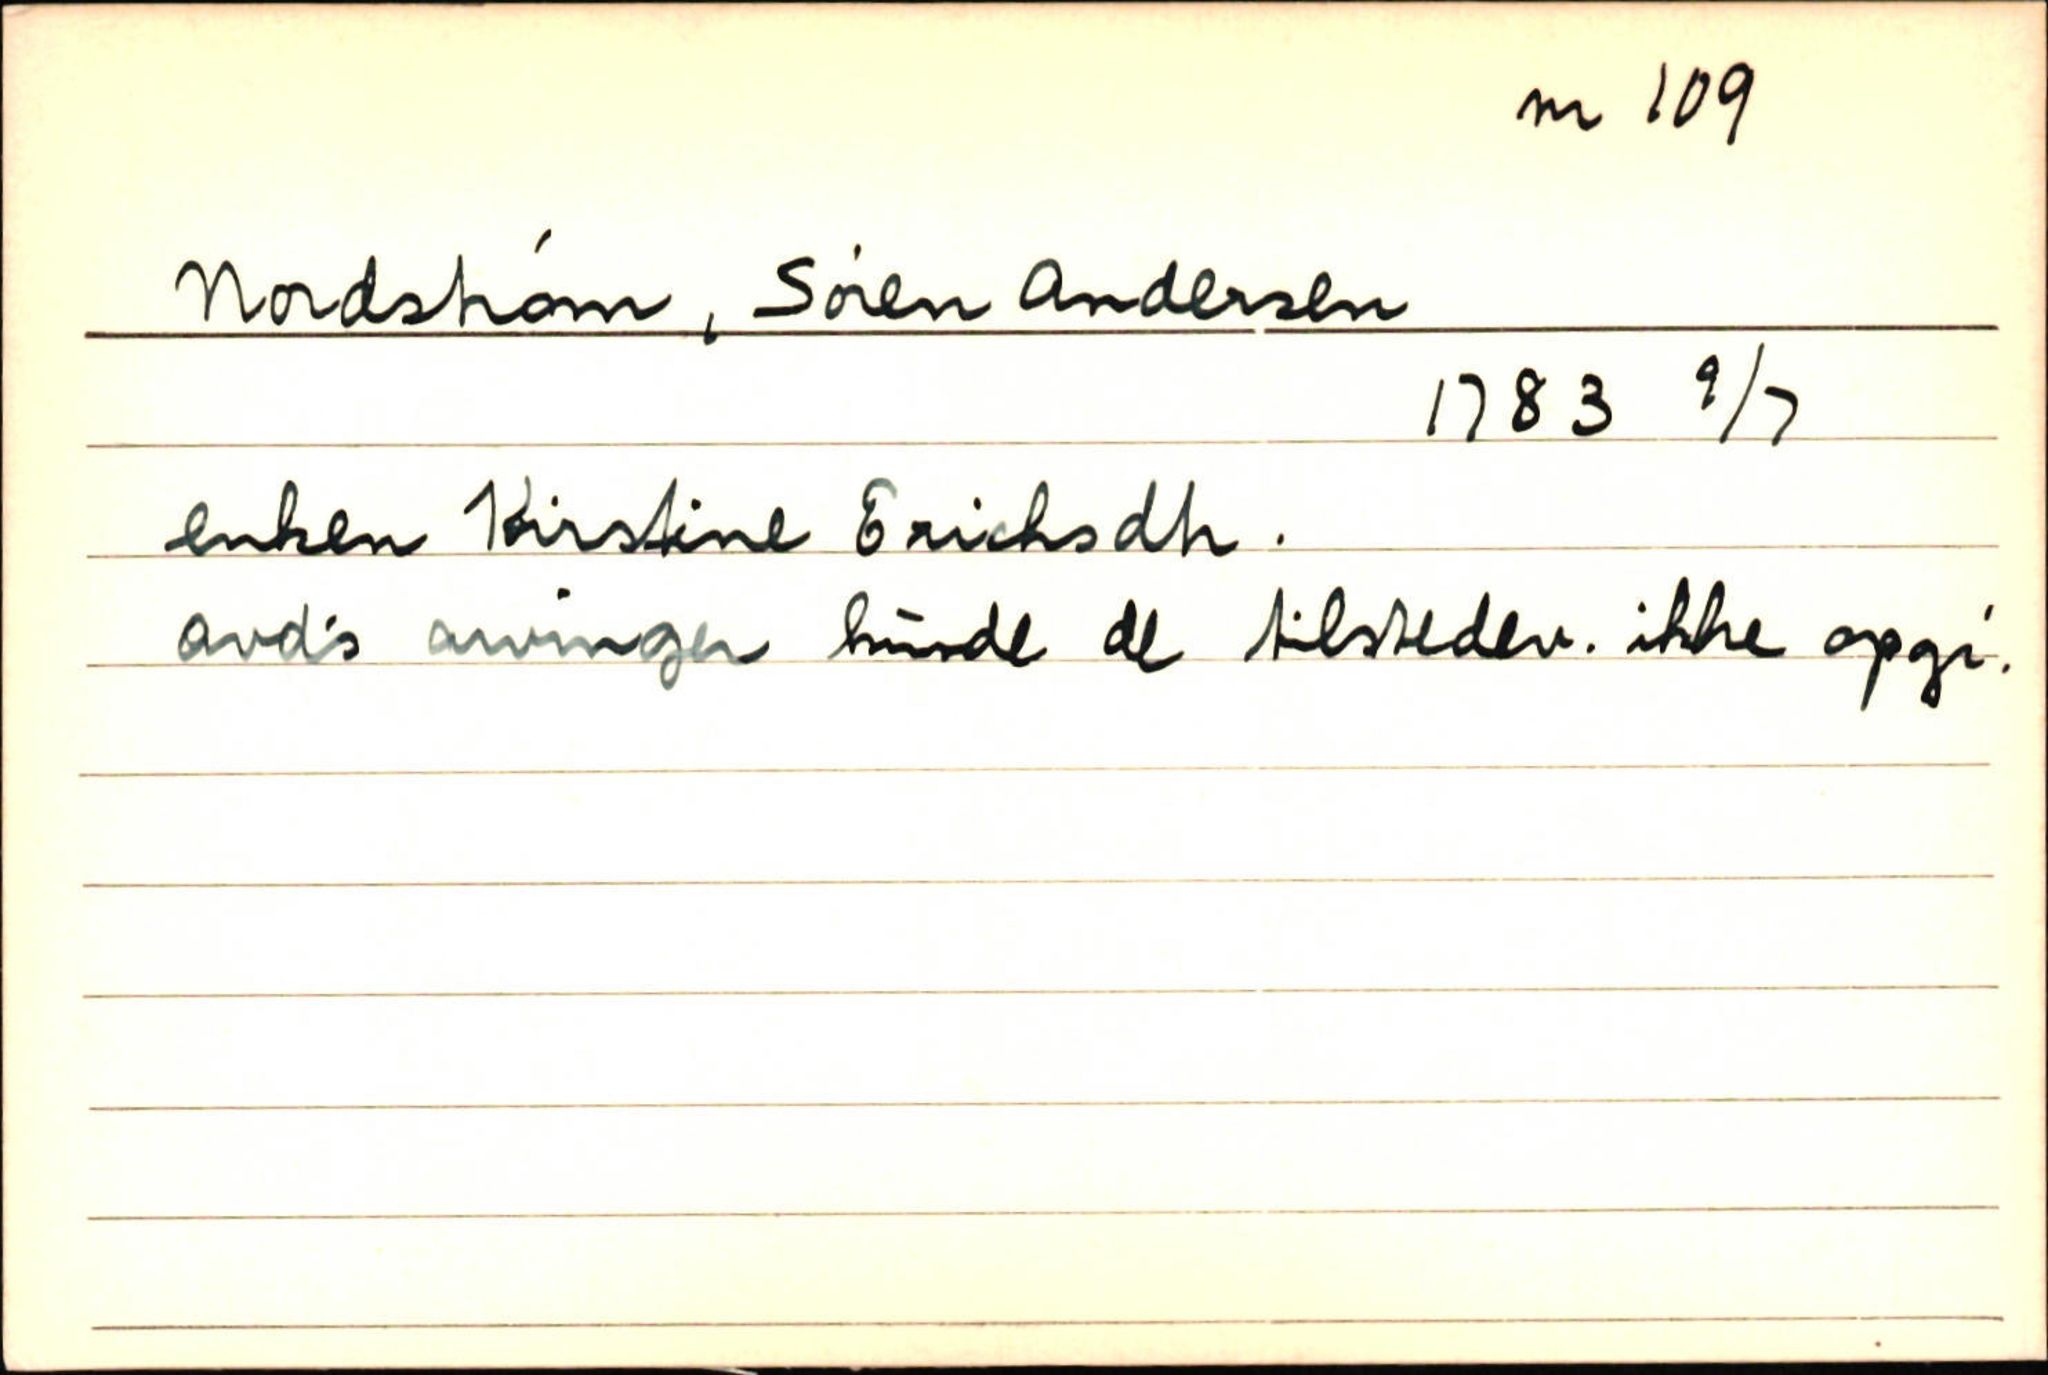 nr 109
Nordstrøm, Søren Andersen
1783 9/7
enken Kirstine Erichsdtr.
avd's arvinger kunde de tilstedev. ikke opgi.